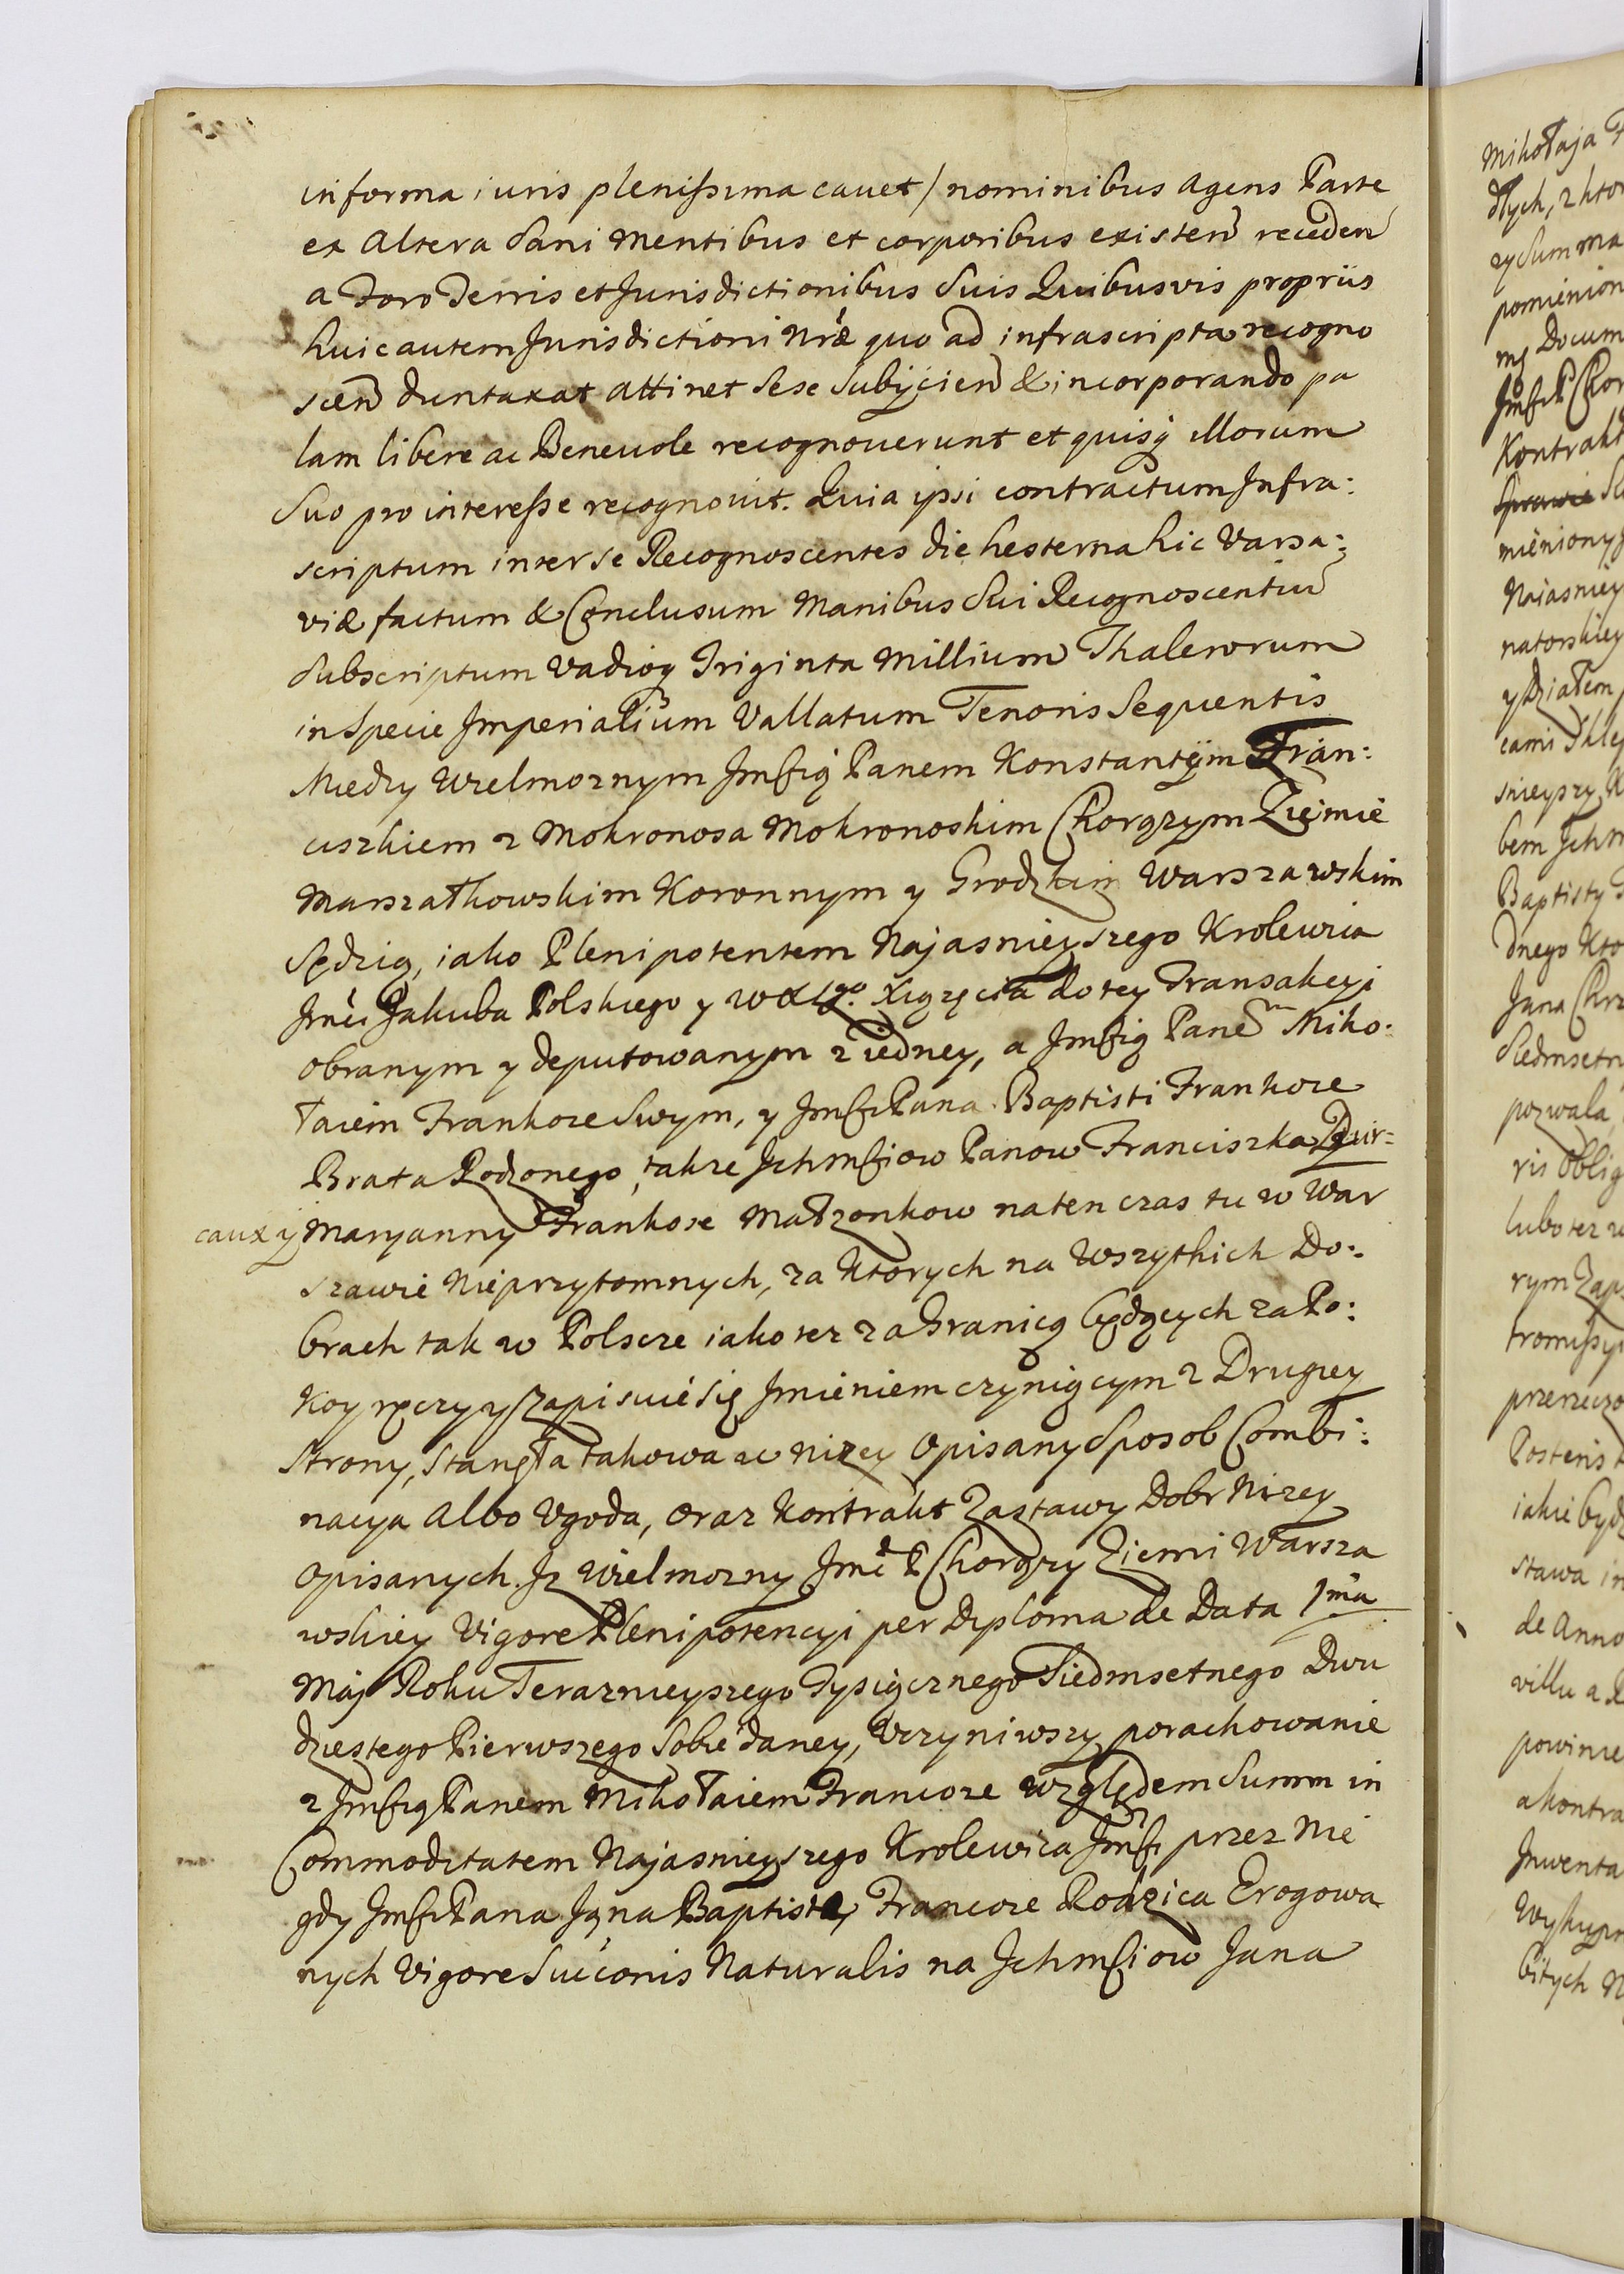 informa iuris plenissima cavet / nominibus agens Parte
ex Altera Sani Mentibus et corporibus existen̄ receden̄
a Foro Terris et Jurisdictionibus Suis Quibusvis propriis
huic autem Jurisdictioni Nr̄æ quo ad infrascripta recogno
scen̄ duntaxat attinet Sese Subÿcien̄ & incorporando pa
lam libere ac Benevole recognoverunt et quisq̨ illorum
Suo pro interesse recognovit. Quia ipsi contractum Infra:
scriptum inter se Recognoscentes die hesterna hic Varsa:
viæ factum & Conclusum Manibus Sui Recognoscentiū
Subscriptum Vadioq̨ Triginta Millium Thalerorum
in Specie Imperialium Vallatum Tenoris Sequentis
Miedzy Wielmoznym Jmścią Panem Konstantÿm Fran:
ciszkiem z Mokronosa Mokronoskim Chorązym Ziemie
Marszałkowskim Koronnym y Grodzkim Warszawskim
Sędzią, iako Plenipotentem Najasnieyszego Krolewica
Jmći Jakuba Polskiego y WXLgo. Xiązęcia do tey Transakcyi
obranym y deputowanym z iedney, a Jmścią Panem Miko:
łaiem Frankoze Swym, y Jmści Pana Baptisti Frankoze
Brata Rodzonego, takze Ichmściow Panow Franciszka Dur-
caux y Maryanny Frankose Małzonkow naten czas tu w War
szawie Nieprzytomnych, za ktorych na Wszytkich Do:
brach tak w Polscze iako tez za Granicą będących za Po:
koy ręczy y Zapisuie się Jmieniem czyniącym z Drugiey
Strony, Stanęła takowa w nizey Opisany Sposob Combi:
nacya Albo Vgoda, oraz Kontrakt Zastawy Dobr Nizey
Opisanych. Jz Wielmozny Jmć P Chorązy Ziemi Warsza
wskiey Vigore Plenipotencyi per Diploma de Data 1ma
Maj Roku Teraznieyszego Tysiącznego Siedmsetnego Dwu
dziestego Pierwszego Sobie daney, Vczyniwszy porachowanie
z Jmścią Panem Mikołaiem Francoze Względem Summ in
Commoditatem Najasnieyszego Krolewica Jmści przez Nie
gdy Jmści Pana Jana Baptistę Francoze Rodzica Erogowa
nych Vigore Suċċonis Naturalis na Ichmściow Jana
Mikołaja
dłych, z ktor
zy Summa
pomienion
mą Docum
Jmści P Chor
Kontrakt
mieniony
Najasniey
natorskiey
y Działem
cami
snieyszy K
bem Ichm
Baptisty
dnego Kto
Jana Chrz
Siedmsetn
pozwala
ris Oblig
lubo tez w
rym Zapi
promissyi
przerzeczo
Posteris
iakie będz
stawa in
de Anno
villu a
powinie
a kontra
Inwenta
Wykupn
bitych N